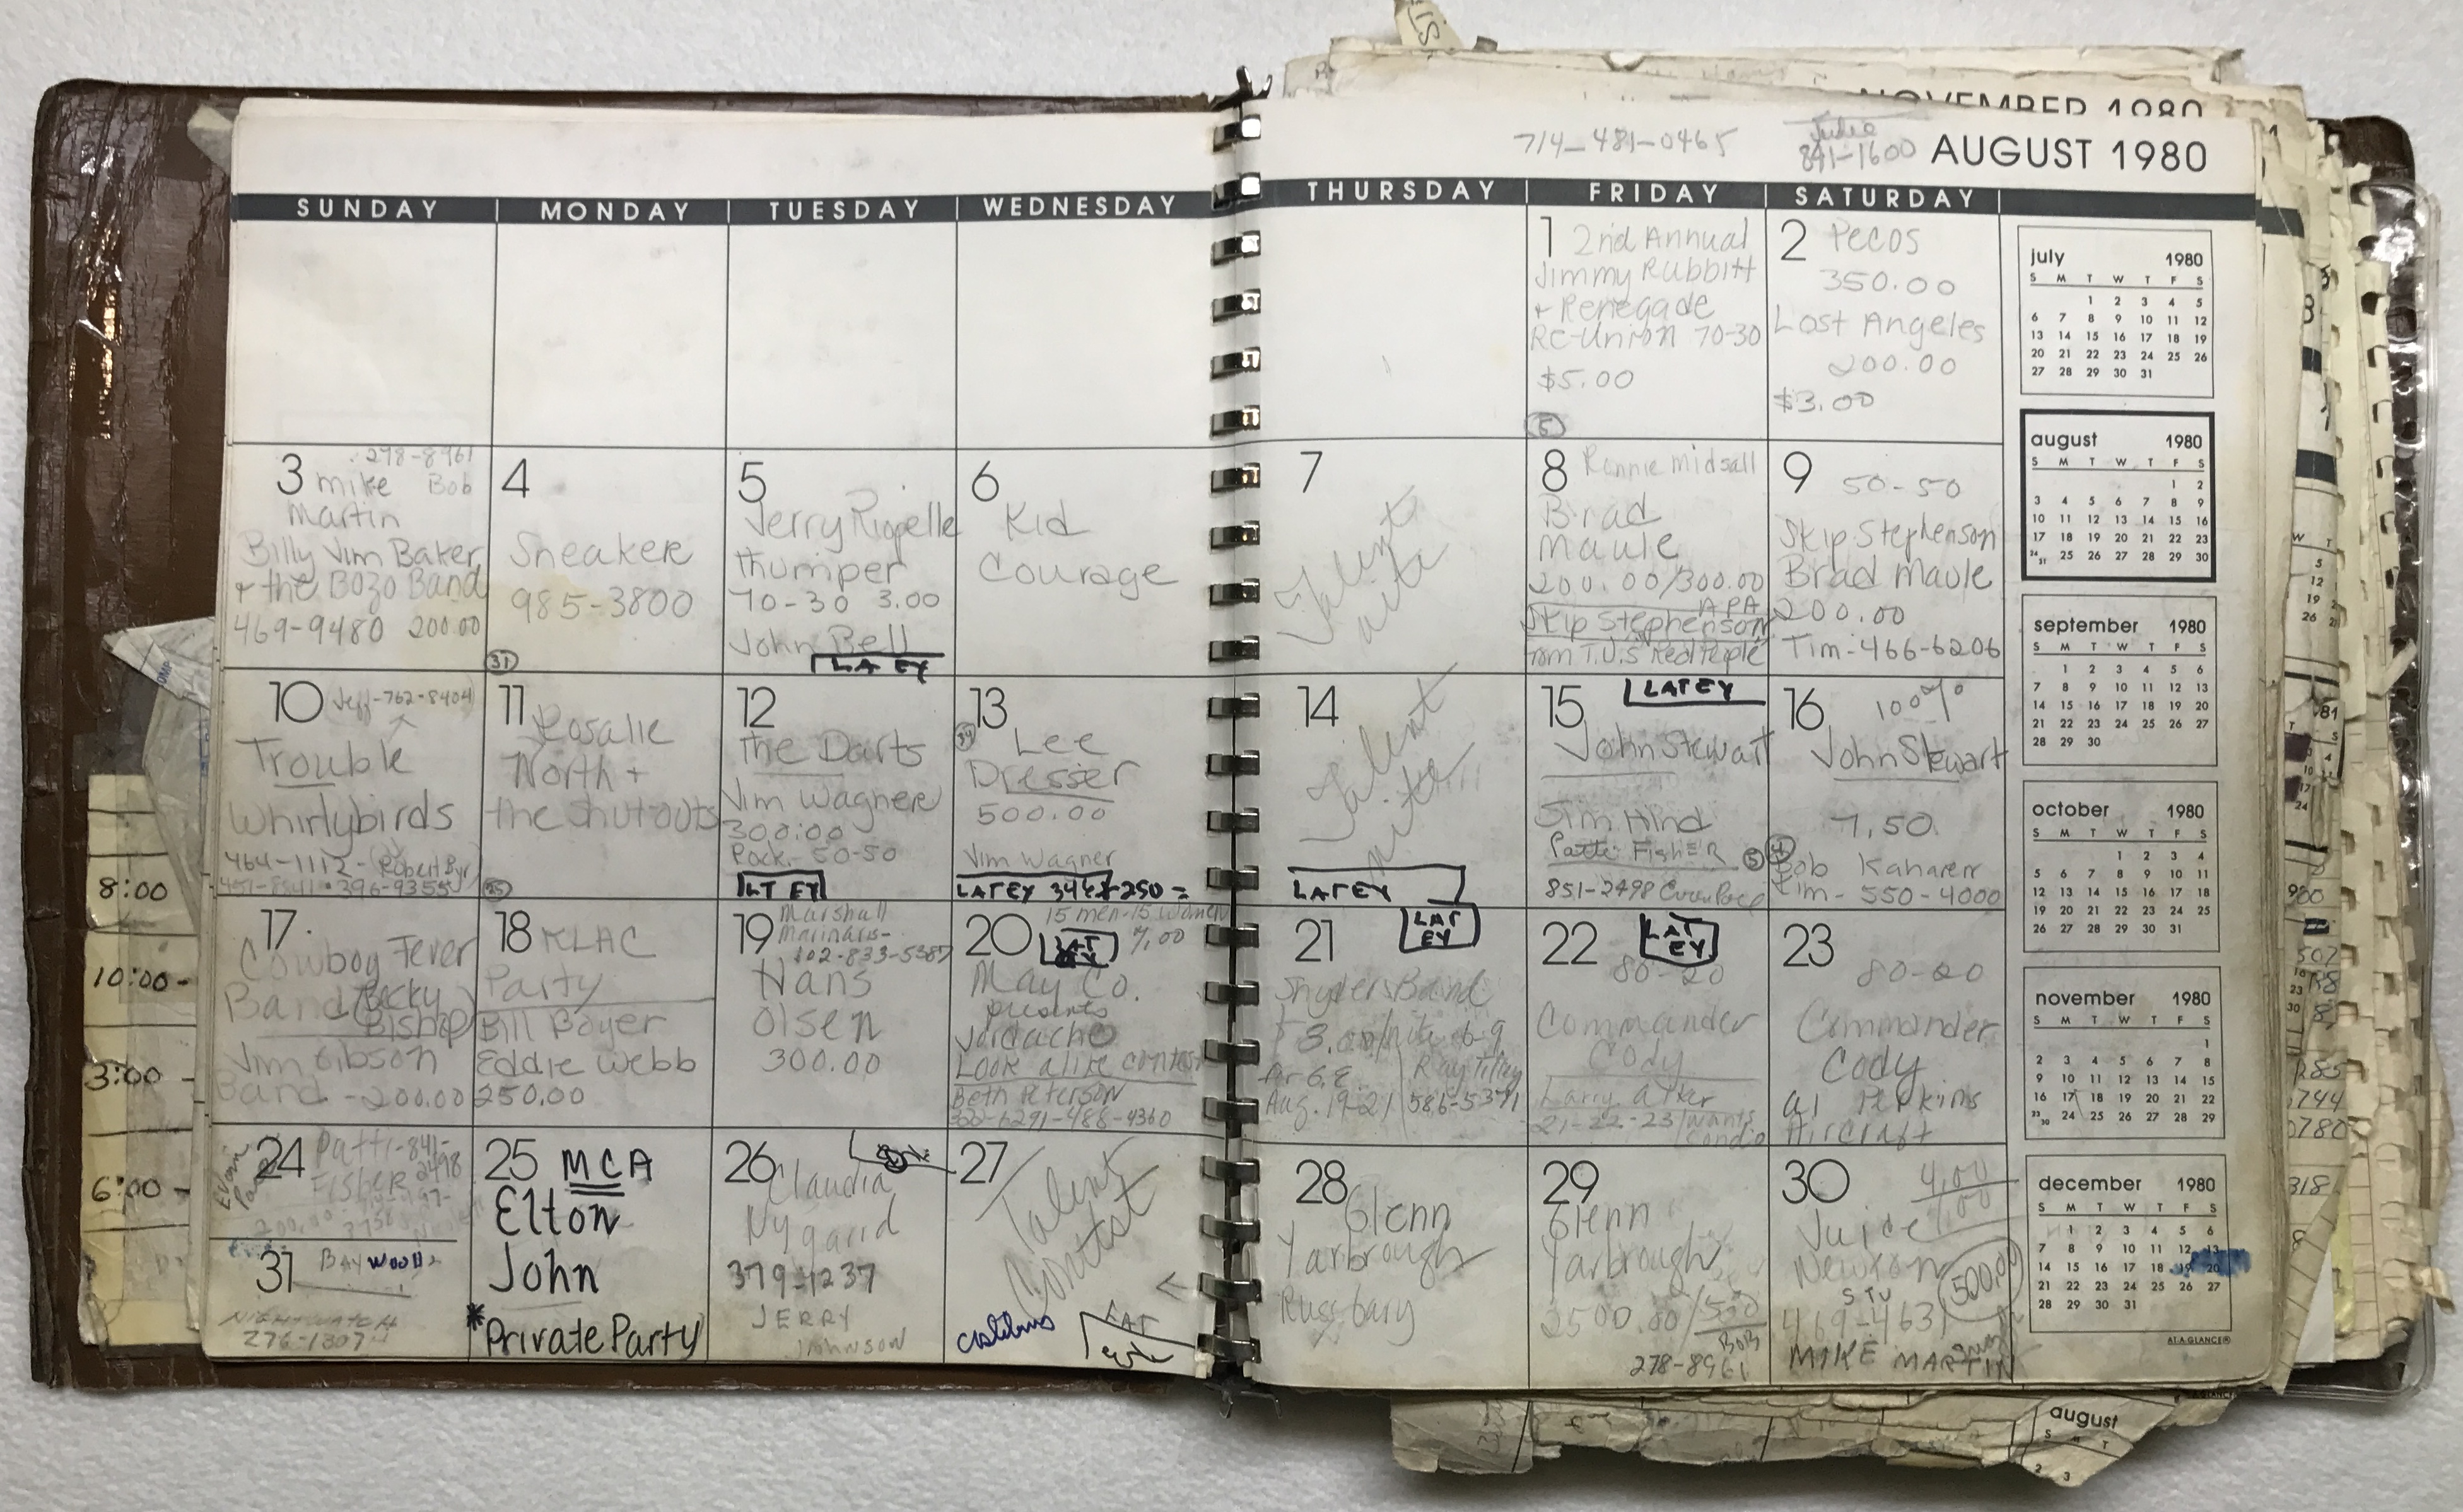 NOVEMBER 1980
714-481-0465
841-1600
AUGUST 1980
SUNDAY MONDAY TUESDAY WEDNESDAY THURSDAY FRIDAY SATURDAY
1 2nd Annual
Jimmy Rabbitt
+ Renegade
Re-Union 70-30
$5.00
2 Pecos
350.00
Lost Angeles
200.00
$3.00
3 278-8961
mike Bob
Martin
Billy Jim Baker
+ the Bozo Band
469-9480 200.00
4
Sneaker
985-3800
31
5
Jerry Riopelle
Thumper
70-30 3.00
John Bell
LATEY
6
Kid
Courage
7
Talent
nite
8 Ronnie Midsall
Brad
Maule
200.00/300.00
APA
Skip Stephenson
from T.V.'s Real People
9 50-50
Skip Stephenson
Brad Maule
200.00
Tim-466-6206
10 Jeff-762-8404
Trouble
Whirlybirds
464-1112-
396-9355
11 Rosalie
North +
the Shutouts
12
The Darts
Jim Wagner
300.00
Rock- 50-50
LT EY
13
Lee
Dresser
500.00
Jim Wagner
LATEY
250 =
14
Talent
nite
LATEY
15 LATEY
John Stewart
Jim Hind
Patti FISHER
851-2498
16 100%
John Stewart
7.50
Bob
Tim- 550-4000
17
Cowboy Fever
Band Becky
Bishop
Jim Gibson
Band -200.00
18 KLAC
Party
Bill Boyer
Eddie Webb
250.00
19 Marshall
Hans
Olsen
300.00
20 15 men-15 women
LAT EY 7.00
May Co.
presents
Jordache
Look alike contest
Beth Peterson
488-4360
21 LAT
EY
Snyders Band
Aug. 19-21 586-5371
22 LAT
EY
80-20
Commander
Cody
21-22-23/wants
23
80-20
Commander
Cody
al Perkins
Aircraft
24 Patti-841-
FISHER 2498
25 MCA
Elton
John
*Private Party
26
Claudia
Nygaard
379-1237
JERRY
Johnson
27
Talent
Contest
28 Glenn
Yarbrough
Russ Gary
29
Glenn
Yarbrough
2500.00/
BOB
278-8961
30 4.00
Juice
Newton
500.00
469-4631
MIKE MARTIN
31 BAYwoods
NIGHTWATCH
276-1307
8:00
10:00-
3:00
6:00
july 1980
S M T W T F S
1 2 3 4 5
6 7 8 9 10 11 12
13 14 15 16 17 18 19
20 21 22 23 24 25 26
27 28 29 30 31
august 1980
S M T W T F S
1 2
3 4 5 6 7 8 9
10 11 12 13 14 15 16
17 18 19 20 21 22 23
24 31 25 26 27 28 29 30
september 1980
S M T W T F S
1 2 3 4 5 6
7 8 9 10 11 12 13
14 15 16 17 18 19 20
21 22 23 24 25 26 27
28 29 30
october 1980
S M T W T F S
1 2 3 4
5 6 7 8 9 10 11
12 13 14 15 16 17 18
19 20 21 22 23 24 25
26 27 28 29 30 31
november 1980
S M T W T F S
1
2 3 4 5 6 7 8
9 10 11 12 13 14 15
16 17 18 19 20 21 22
23 30 24 25 26 27 28 29
december 1980
S M T W T F S
1 2 3 4 5 6
7 8 9 10 11 12 13
14 15 16 17 18 19 20
21 22 23 24 25 26 27
28 29 30 31
AT-A-GLANCE®
august
S M T
2 3